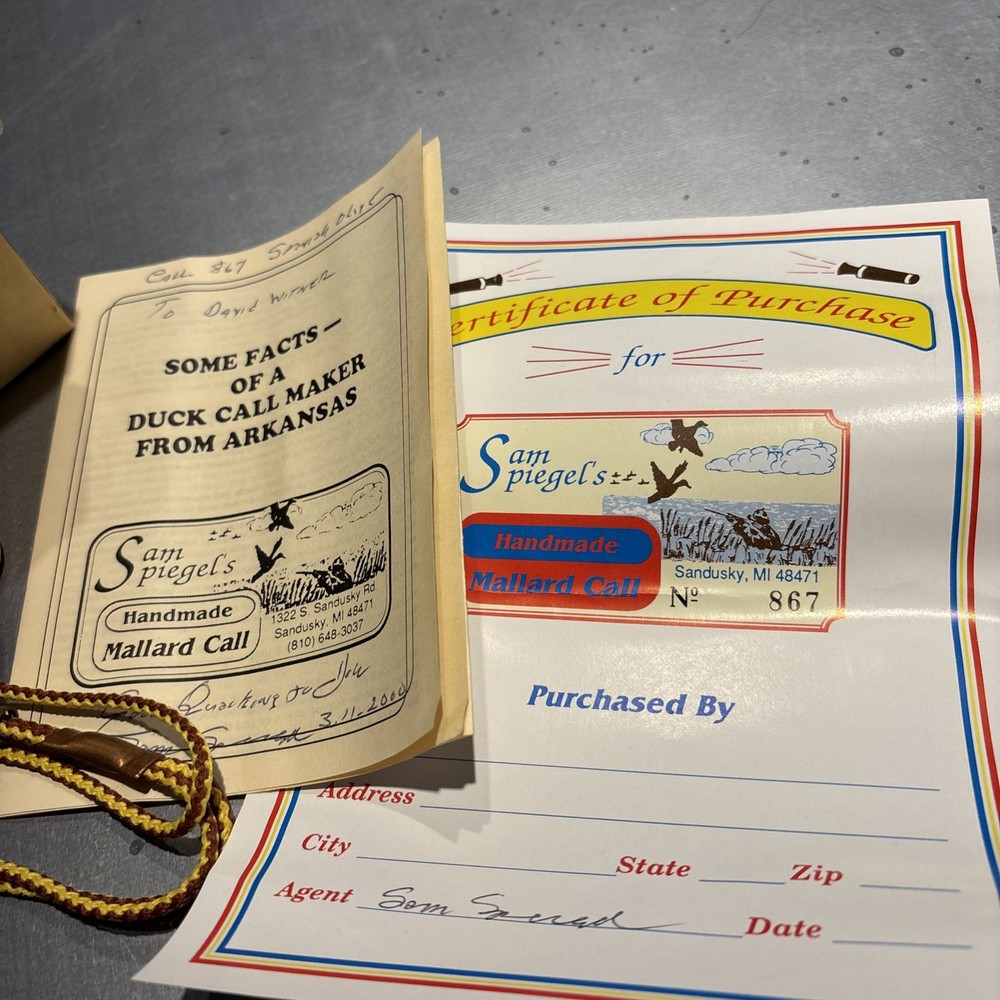 Call 867 Spanish Olive
To David Witmer
SOME FACTS —
OF A
DUCK CALL MAKER
FROM ARKANSAS
Sam
Spiegel's
Handmade
Mallard Call
1322 S. Sandusky Rd
Sandusky, MI 48471
(810) 648-3037
Good Quacking to You
Sam 3.11.2000
ertificate of Purchase
for
Sam
Spiegel's
Handmade
Mallard Call
Sandusky, MI 48471
Nº 867
Purchased By
Address
City State Zip
Agent Sam Spiegel Date